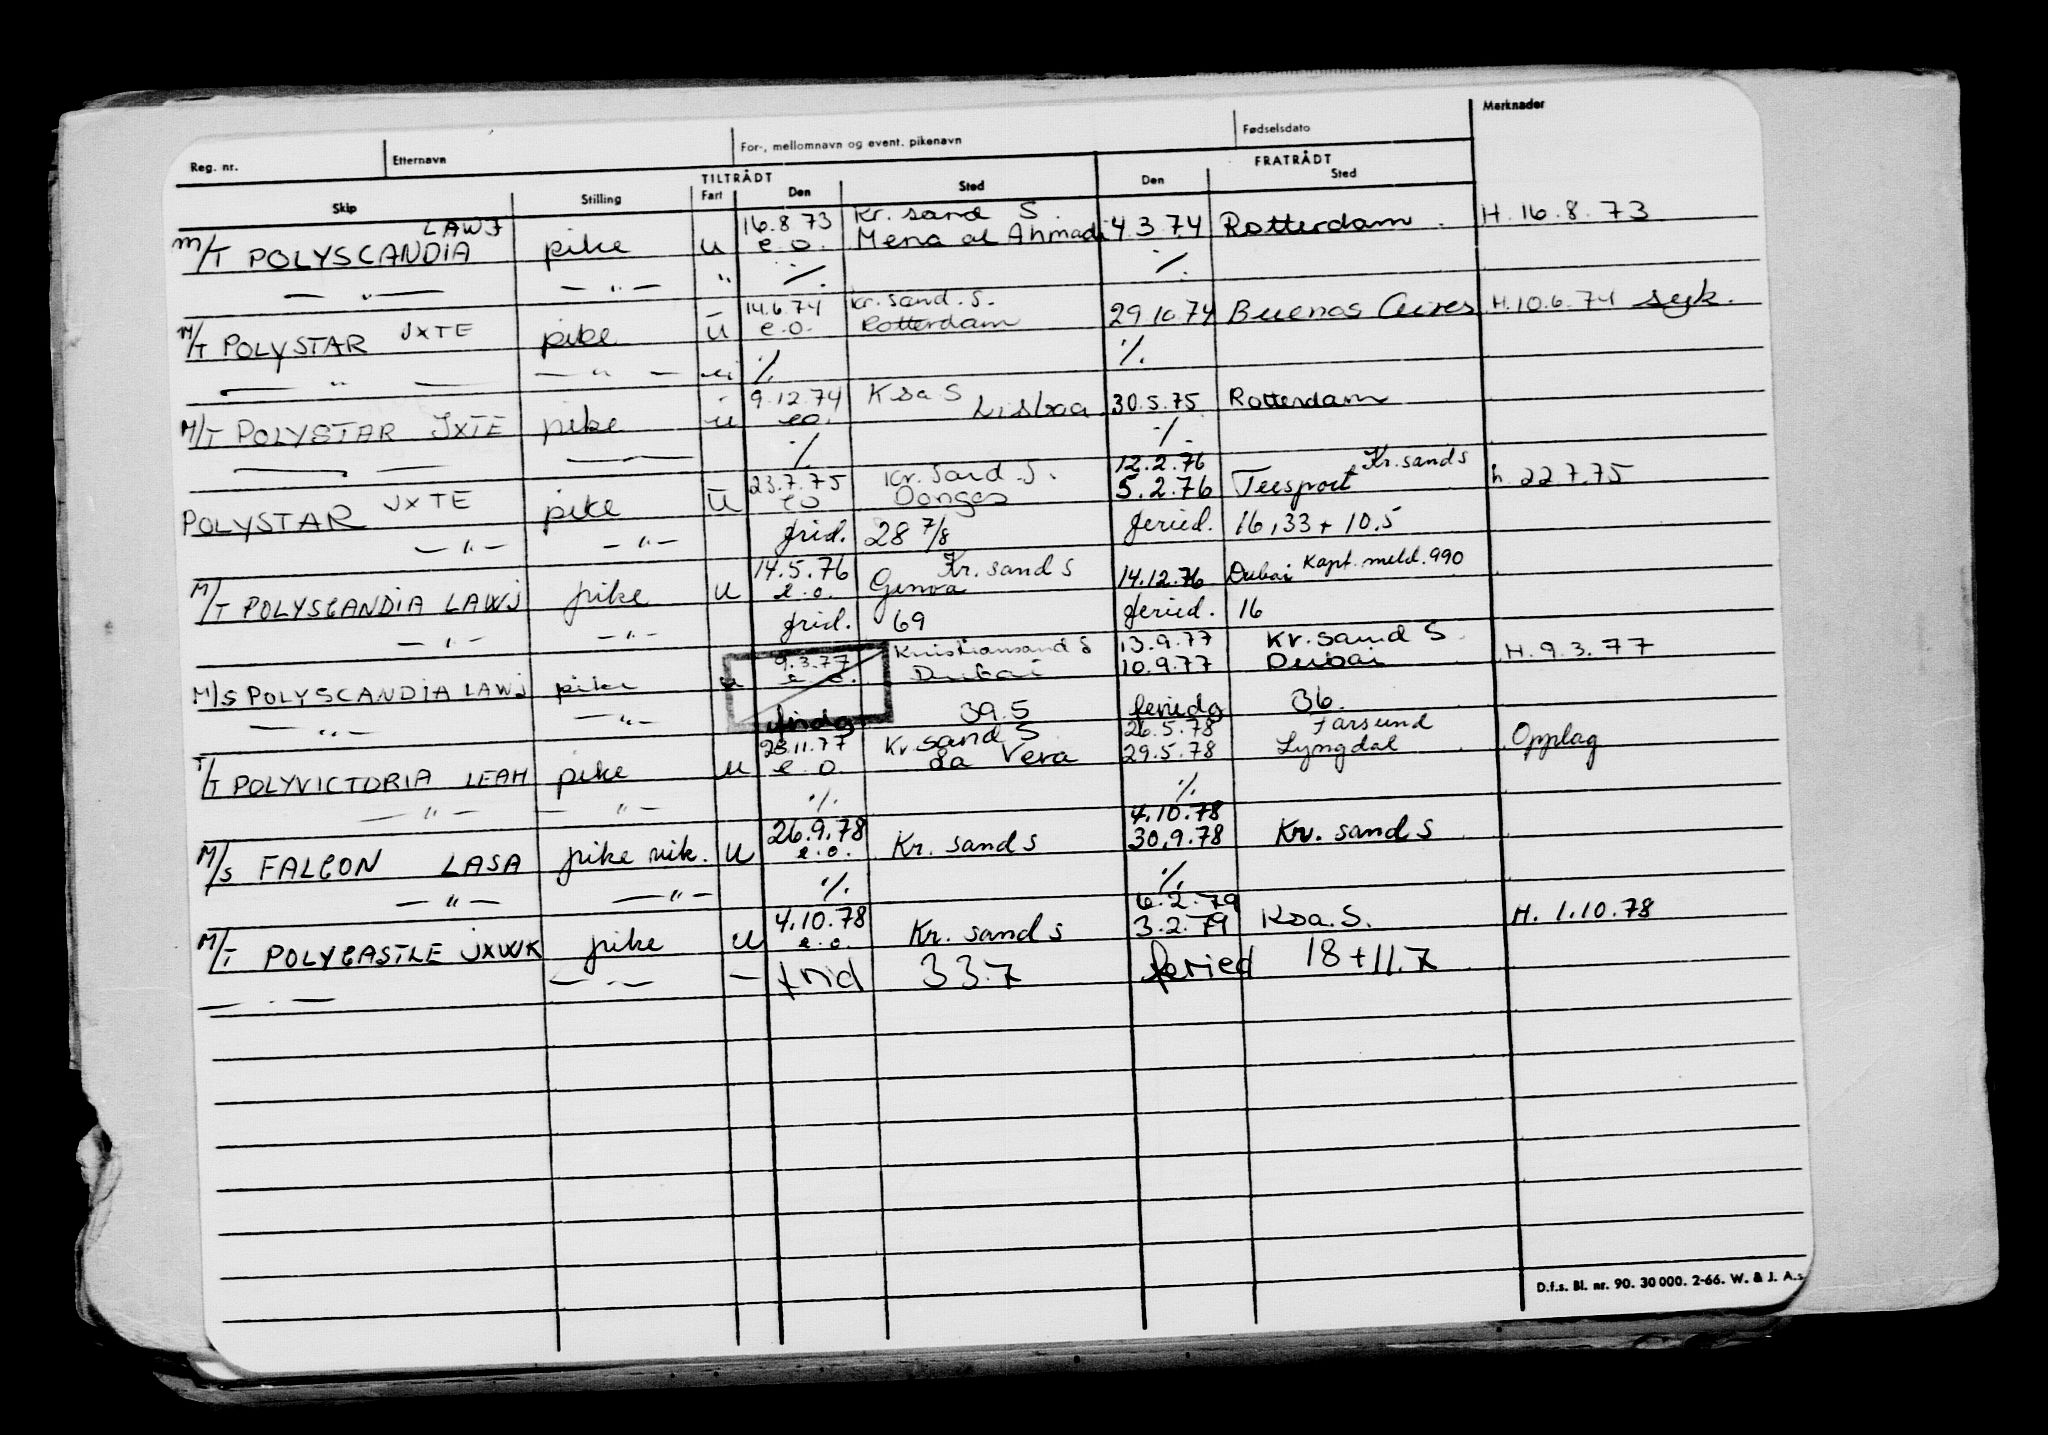 Reg. nr. Etternavn For-, mellomnavn og event. pikenavn Fødselsdato Merknader
TILTRÅDT FRATRÅDT
Skip Stilling Fart Den Sted Den Sted
LAWJ 16.8 73 Kr. sand S.
M/T POLYSCANDIA pike u e o. Mena al Ahmadi 4.3.74 Rotterdam. H. 16.8.73
— " — — " — " % %.
14.6.74 Kr. sand. S.
M/T POLYSTAR JXTE pike u e.o. Rotterdam 29.10.74 Buenos Aires H.10.6.74 syk.
— " — — " — " % %.
9.12.74 Ksa. S
M/T POLYSTAR JXTE pike u eo. Lisboa 30.5.75 Rotterdam
— — — % %
23.7.75 Kr. Sand. S. 12.2.76 Kr. sand s
POLYSTAR JXTE pike u eo Donges 5.2.76 Teesport h. 22 7.75
— " — — " — frid. 28 7/8 feried. 16,33 + 10.5
14.5.76 Kr. sand s
M/T POLYSCANDIA LAWJ pike u e.o. Genova 14.12.76 Dubai Kapt. meld. 990
— " — — " — frid. 69 feried. 16
9.3.77 Kristiansand S 13.9.77 Kr. sand S.
M/S POLYSCANDIA LAWJ pike u e o. Dubai 10.9.77 Dubai H. 9.3.77
— " — — " — fridg 39.5 feriedg 36.
23.11.77 Kr. sand S 26.5.78 Farsund
T/T POLYVICTORIA LEAH pike u e.o. La Vera 29.5.78 Lyngdal Opplag
— " — — " — % %
26.9.78 4.10.78
M/S FALCON LASA pike vik. u e.o. Kr. sand s 30.9.78 Kr. sand S
— " — — " — % %
4.10.78 6.2.79
M/T POLYCASTLE JXWK pike u e.o. Kr. sand s 3.2.79 Ksa. S. H. 1.10.78
— " — — " — — frid 33.7 feried 18+11.7
D.f.s. Bl. nr. 90. 30 000. 2-66. W. & J. A.s